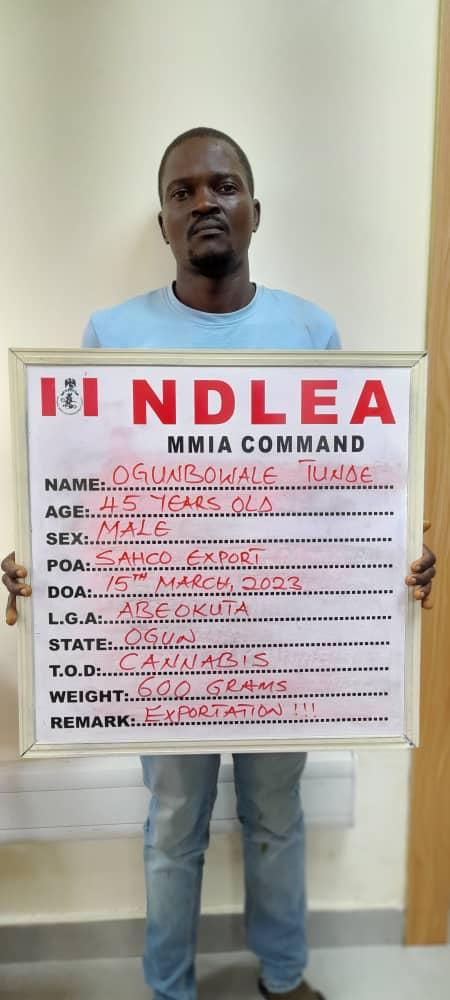 NDLEA
MMIA COMMAND
NAME: OGUNBOWALE TUNDE
AGE: 45 YEARS OLD
SEX: MALE
POA: SAHCO EXPORT
DOA: 15TH MARCH, 2023
L.G.A: ABEOKUTA
STATE: OGUN
T.O.D: CANNABIS
WEIGHT: 600 GRAMS
REMARK: EXPORTATION !!!